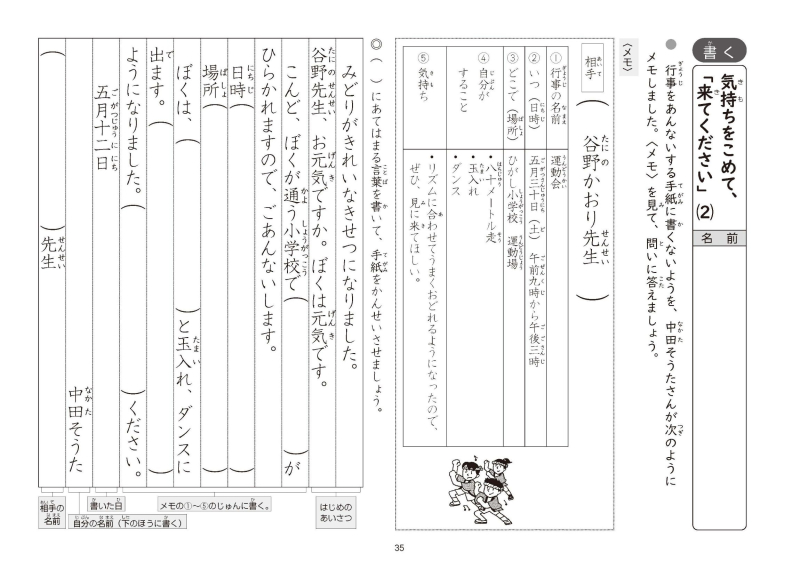 書く
気持ちをこめて、
「来てください」
(2)
名前
● 行事をあんないする手紙に書くないようを、中田そうたさんが次のように
メモしました。〈メモ〉を見て、問いに答えましょう。
〈メモ〉
相手
（谷野かおり先生）
① 行事の名前
運動会
② いつ（日時）
五月三十日（土） 午前九時から午後三時
③ どこで（場所）
ひがし小学校 運動場
④ 自分が
すること
・八十メートル走
・玉入れ
・ダンス
⑤ 気持ち
・リズムに合わせてうまくおどれるようになったので、
ぜひ、見に来てほしい。
◎（ ）にあてはまる言葉を書いて、手紙をかんせいさせましょう。
みどりがきれいなきせつになりました。
谷野先生、お元気ですか。ぼくは元気です。
こんど、ぼくが通う小学校で（ ）が
ひらかれますので、ごあんないします。
日時（ ）
場所（ ）
ぼくは、（ ）と玉入れ、ダンスに
出ます。（ ）
ようになりました。（ ）ください。
五月十二日
中田そうた
（ ）先生
はじめの
あいさつ
メモの①〜⑤のじゅんに書く。
書いた日
自分の名前（下のほうに書く）
相手の
名前
35